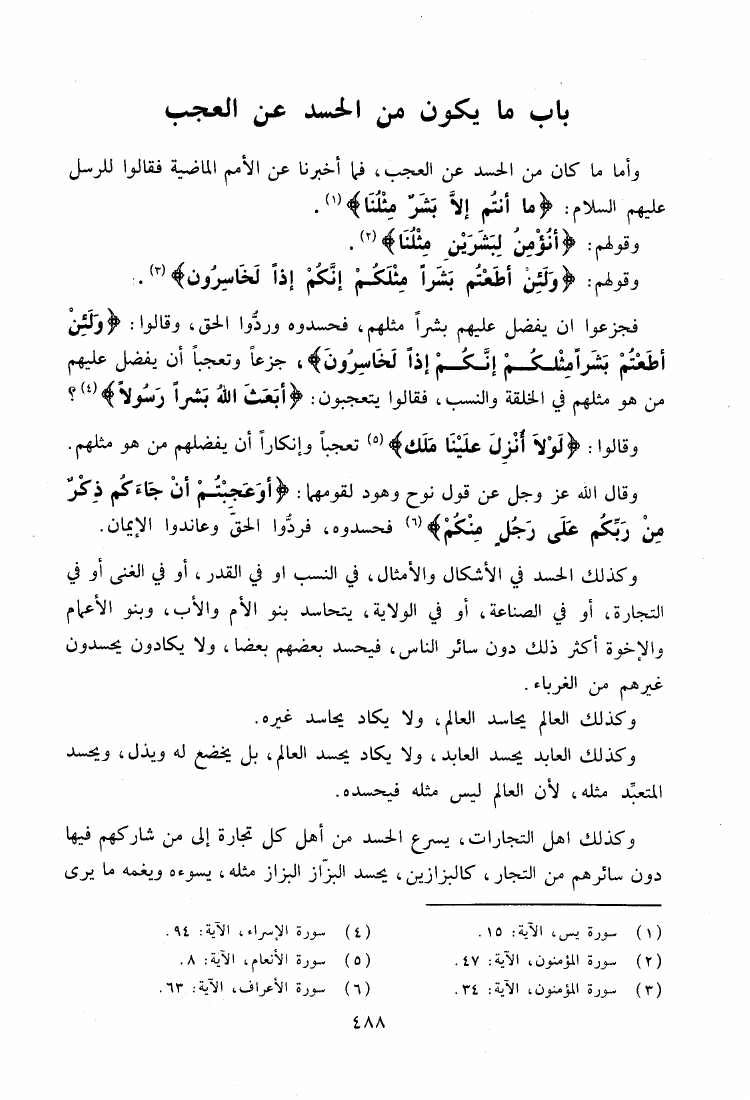 باب ما يكون من الحسد عن العجب
وأما ما كان من الحسد عن العجب، فما أخبرنا عن الأمم الماضية فقالوا للرسل
عليهم السلام: ﴿ما أنتُم إلاَّ بَشَرٌ مِثْلُنَا﴾(١).
وقولهم: ﴿أنُؤْمِنُ لِبَشَرَيْنِ مِثْلُنَا﴾(٢).
وقولهم: ﴿وَلَئِنْ أطَعْتُم بَشَراً مِثْلَكُمْ إنَّكُمْ إذاً لَخَاسِرُون﴾(٣).
فجزعوا ان يفضل عليهم بشراً مثلهم، فحسدوه وردُّوا الحق، وقالوا: ﴿وَلَئِنْ
أطَعْتُمْ بَشَراً مِثْلَكُمْ إنَّكُمْ إذاً لَخَاسِرُونَ﴾، جزعاً وتعجباً أن يفضل عليهم
من هو مثلهم في الخلقة والنسب، فقالوا يتعجبون: ﴿أبَعَثَ اللهُ بَشَراً رَسُولاً﴾(٤)؟
وقالوا: ﴿لَوْلاَ أُنْزِلَ علَيْنَا مَلَك﴾(٥) تعجباً وإنكاراً أن يفضلهم من هو مثلهم.
وقال الله عز وجل عن قول نوح وهود لقومهما: ﴿أوَعَجِبْتُمْ أنْ جَاءَكُم ذِكْرٌ
مِنْ رَبِّكُم عَلَى رَجُلٍ مِنْكُمْ﴾(٦) فحسدوه، فردُّوا الحقَّ وعاندوا الإيمان.
وكذلك الحسد في الأشكال والأمثال، في النسب او في القدر، أو في الغنى أو في
التجارة، أو في الصناعة، أو في الولاية، يتحاسد بنو الأم والأب، وبنو الأعمام
والإخوة أكثر ذلك دون سائر الناس، فيحسد بعضهم بعضا، ولا يكادون يحسدون
غيرهم من الغرباء.
وكذلك العالم يحاسد العالم، ولا يكاد يحاسد غيره.
وكذلك العابد يحسد العابد، ولا يكاد يحسد العالم، بل يخضع له ويذل، ويحسد
المتعبِّد مثله، لأن العالم ليس مثله فيحسده.
وكذلك اهل التجارات، يسرع الحسد من أهل كل تجارة إلى من شاركهم فيها
دون سائرهم من التجار، كالبزازين، يحسد البزّاز البزاز مثله، يسوءه ويغمه ما يرى
(١) سورة يس، الآية: ١٥.
(٢) سورة المؤمنون، الآية: ٤٧.
(٣) سورة المؤمنون، الآية: ٣٤.
(٤) سورة الإسراء، الآية: ٩٤.
(٥) سورة الأنعام، الآية: ٨.
(٦) سورة الأعراف، الآية: ٦٣.
٤٨٨